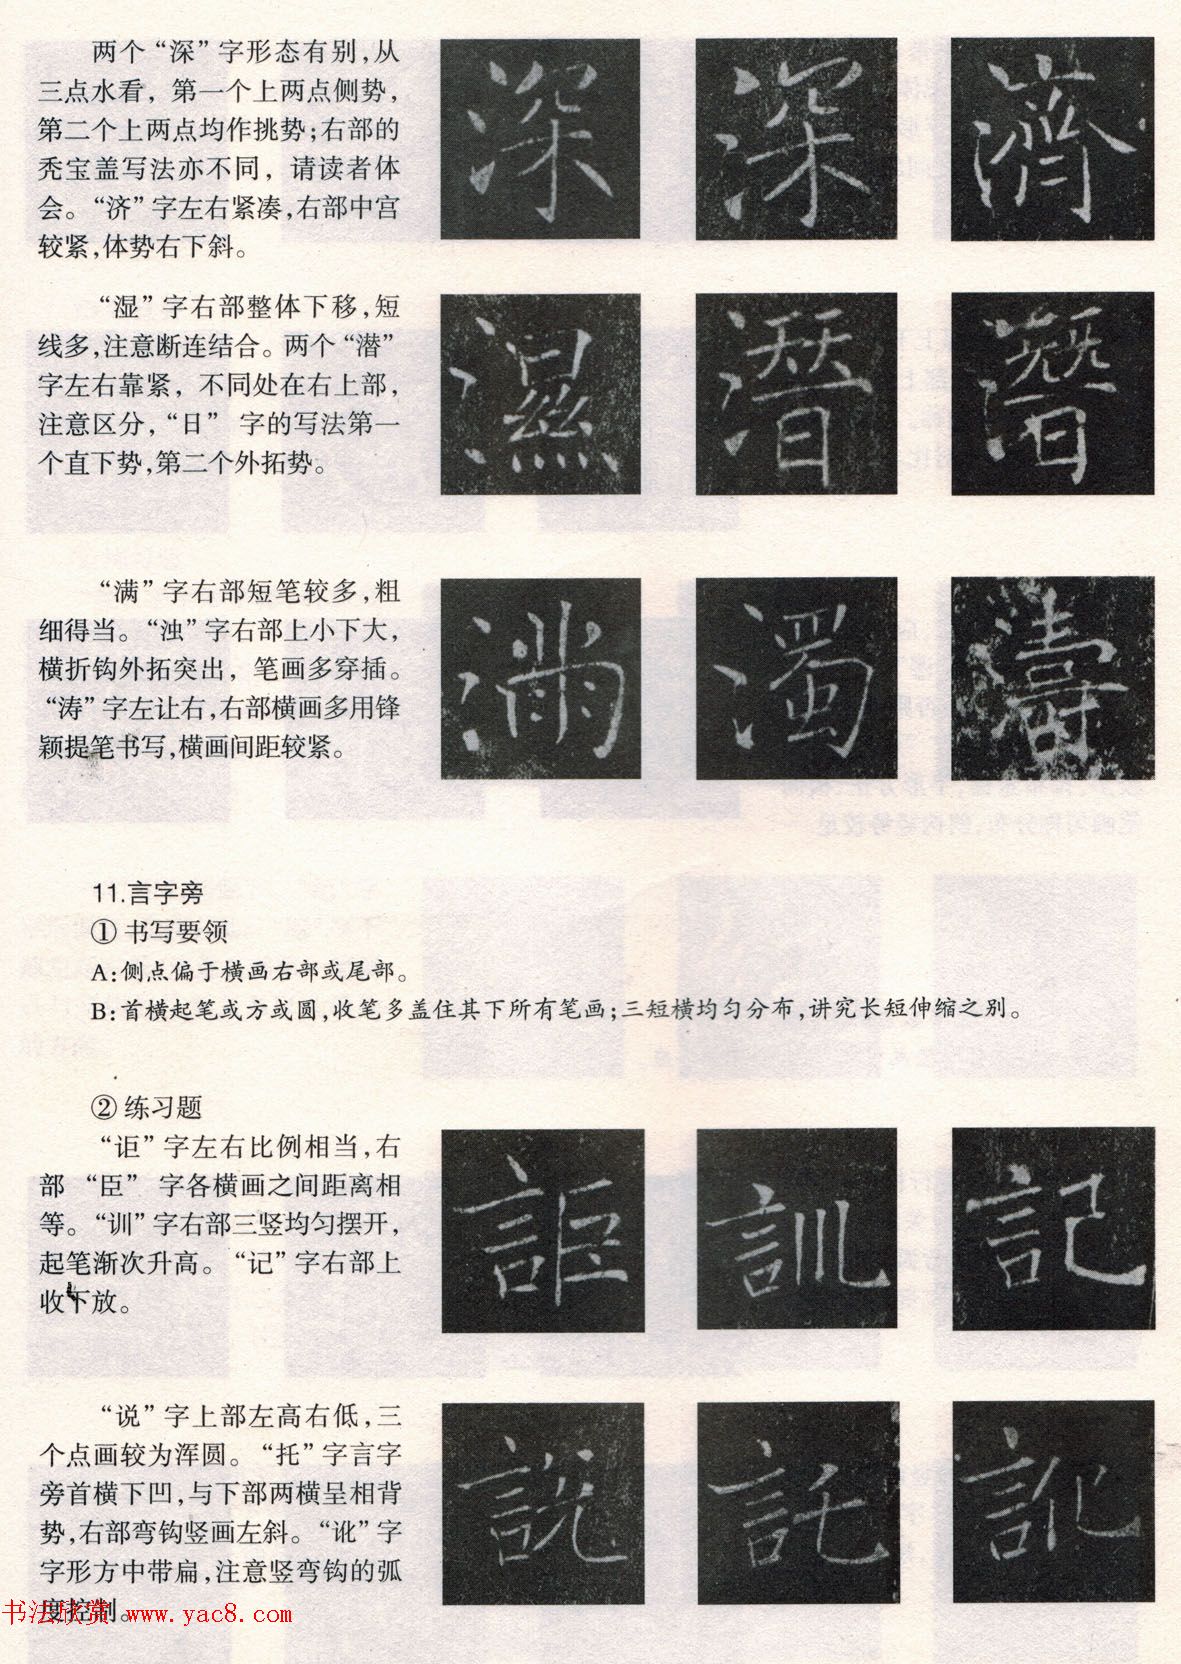 两个“深”字形态有别,从
三点水看，第一个上两点侧势，
第二个上两点均作挑势;右部的
秃宝盖写法亦不同，请读者体
会。“济”字左右紧凑,右部中宫
较紧,体势右下斜。
深 深 濟
“湿”字右部整体下移,短
线多,注意断连结合。两个“潜”
字左右靠紧，不同处在右上部，
注意区分，“日” 字的写法第一
个直下势,第二个外拓势。
濕 潛 潛
“满”字右部短笔较多,粗
细得当。“浊”字右部上小下大，
横折钩外拓突出，笔画多穿插。
“涛”字左让右,右部横画多用锋
颖提笔书写,横画间距较紧。
滿 濁 濤
11.言字旁
① 书写要领
A:侧点偏于横画右部或尾部。
B:首横起笔或方或圆,收笔多盖住其下所有笔画;三短横均匀分布,讲究长短伸缩之别。
② 练习题
“讵”字左右比例相当,右
部 “臣” 字各横画之间距离相
等。“训”字右部三竖均匀摆开，
起笔渐次升高。“记”字右部上
收下放。
詎 訓 記
“说”字上部左高右低,三
个点画较为浑圆。“托”字言字
旁首横下凹,与下部两横呈相背
势,右部弯钩竖画左斜。“讹”字
字形方中带扁,注意竖弯钩的弧
度控制。
説 託 訛
书法欣赏 www.yac8.com